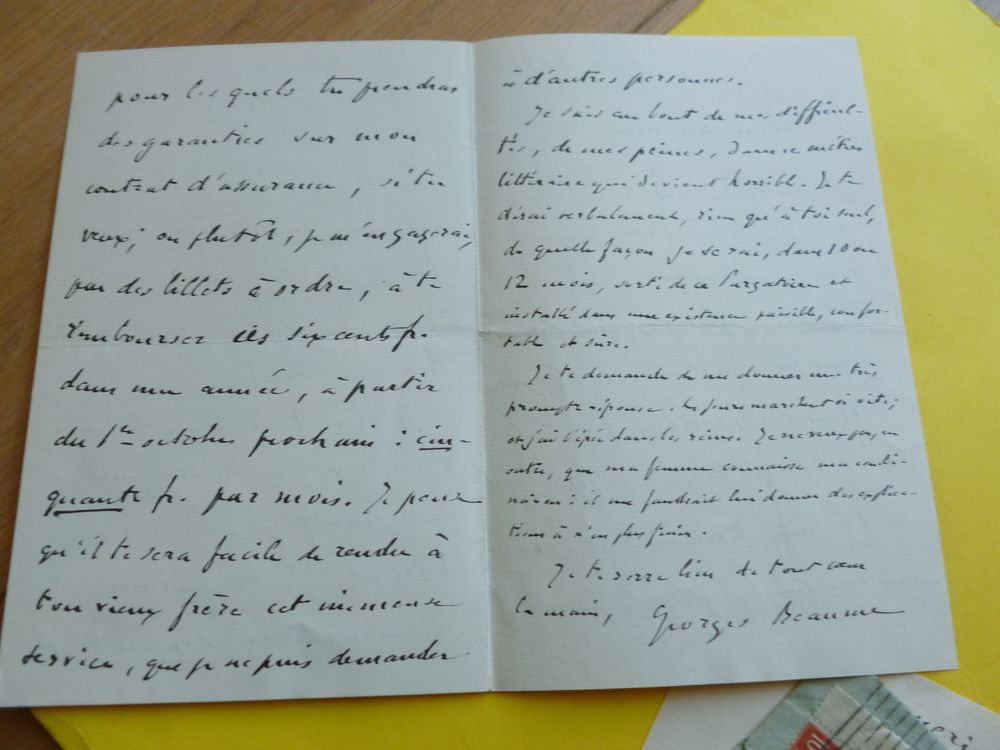 pour lesquels tu prendras
des garanties sur mon
contrat d'assurance, si tu
veux; ou plutôt, je m'engagerai,
par des billets à ordre, à te
rembourser ces six cents fr.
dans une année, à partir
du 1er octobre prochain : cin-
quante fr. par mois. Je pense
qu'il te sera facile de rendre à
ton vieux frère cet immense
service, que je ne puis demander
à d'autres personnes.
Je suis au bout de mes difficul-
tés, de mes peines, dans ce métier
littéraire qui devient horrible. Je te
dirai verbalement, rien qu'à toi seul,
de quelle façon je serai, dans 10 ou
12 mois, sorti de ce Purgatoire et
installé dans une existence paisible, confor-
table et sûre.
Je te demande de me donner une très
prompte réponse. Les jours marchent si vite;
et j'ai l'épée dans les reins. Je ne veux pas, en
outre, que ma femme connaisse ma combi-
naison : il me faudrait lui donner des explica-
tions à n'en plus finir.
Je te serre bien de tout cœur
la main, Georges Beaume